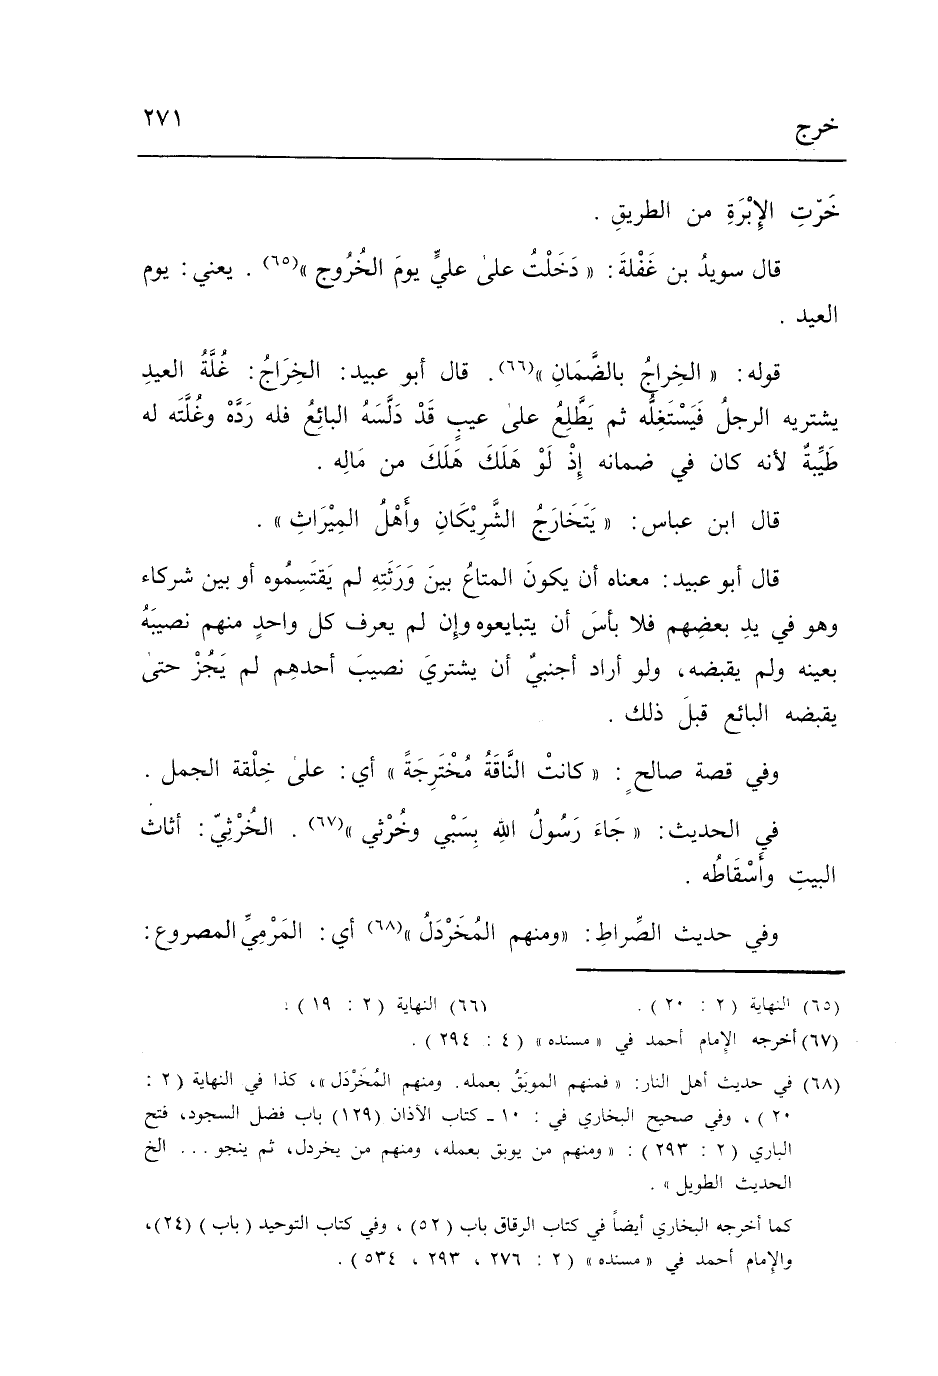 خرج
٢٧١
خَرّتِ الإِبْرَةِ من الطريقِ .
قال سويدُ بن غَفْلةَ: « دَخَلْتُ علىٰ عليٍّ يومَ الخُرُوجِ »(٦٥) . يعني: يوم
العيد .
قوله: « الخِراجُ بالضَّمَانِ »(٦٦). قال أبو عبيد: الخِرَاجُ: غُلَّةُ العيدِ
يشتريه الرجلُ فَيَسْتَغِلُّه ثم يَطَّلِعُ علىٰ عيبٍ قَدْ دَلَّسَهُ البائِعُ فله رَدَّهْ وغُلَّتَه له
طَيِّبةٌ لأنه كان في ضمانه إِذْ لَوْ هَلَكَ هَلَكَ من مَالِه .
قال ابن عباس: « يَتَخَارَجُ الشَّرِيْكَانِ وأَهْلُ المِيْرَاثِ » .
قال أبو عبيد: معناه أن يكونَ المتاعُ بينَ وَرَثَتِهِ لم يَقتَسِمُوه أو بين شركاء
وهو في يدِ بعضِهم فلا بأسَ أن يتبايعوه وإِن لم يعرف كل واحدٍ منهم نصيبَهُ
بعينه ولم يقبضه، ولو أراد أجنبيٌ أن يشتريَ نصيبَ أحدهِم لم يَجُزْ حتىٰ
يقبضه البائع قبلَ ذلك .
وفي قصة صالحٍ : « كانتْ النَّاقَةُ مُخْتَرِجَةً » أي: علىٰ خِلْقة الجمل .
في الحديث: « جَاءَ رَسُولُ اللهِ بِسَبْي وخُرْثي »(٦٧) . الخُرْثِيّ: أثاث
البيتِ وأَسْقَاطُه .
وفي حديث الصِّراطِ: «ومنهم المُخَرْدَلُ »(٦٨) أي: المَرْمِيِّ المصروع:
(٦٥) النهاية ( ٢ : ٢٠ ) . (٦٦) النهاية ( ٢ : ١٩ ) .
(٦٧) أخرجه الإِمام أحمد في « مسنده » ( ٤ : ٢٩٤ ) .
(٦٨) في حديث أهل النار: « فمنهم الموبَقُ بعمله. ومنهم المُخَرْدَل »، كذا في النهاية ( ٢ :
٢٠ ) ، وفي صحيح البخاري في : ١٠ ـ كتاب الآذان (١٢٩) باب فضل السجود، فتح
الباري ( ٢ : ٢٩٣ ) : « ومنهم من يوبق بعمله، ومنهم من يخردل، ثم ينجو ... الخ
الحديث الطويل » .
كما أخرجه البخاري أيضاً في كتاب الرقاق باب ( ٥٢) ، وفي كتاب التوحيد ( باب ) (٢٤)،
والإِمام أحمد في « مسنده » ( ٢ : ٢٧٦ ، ٢٩٣ ، ٥٣٤ ) .